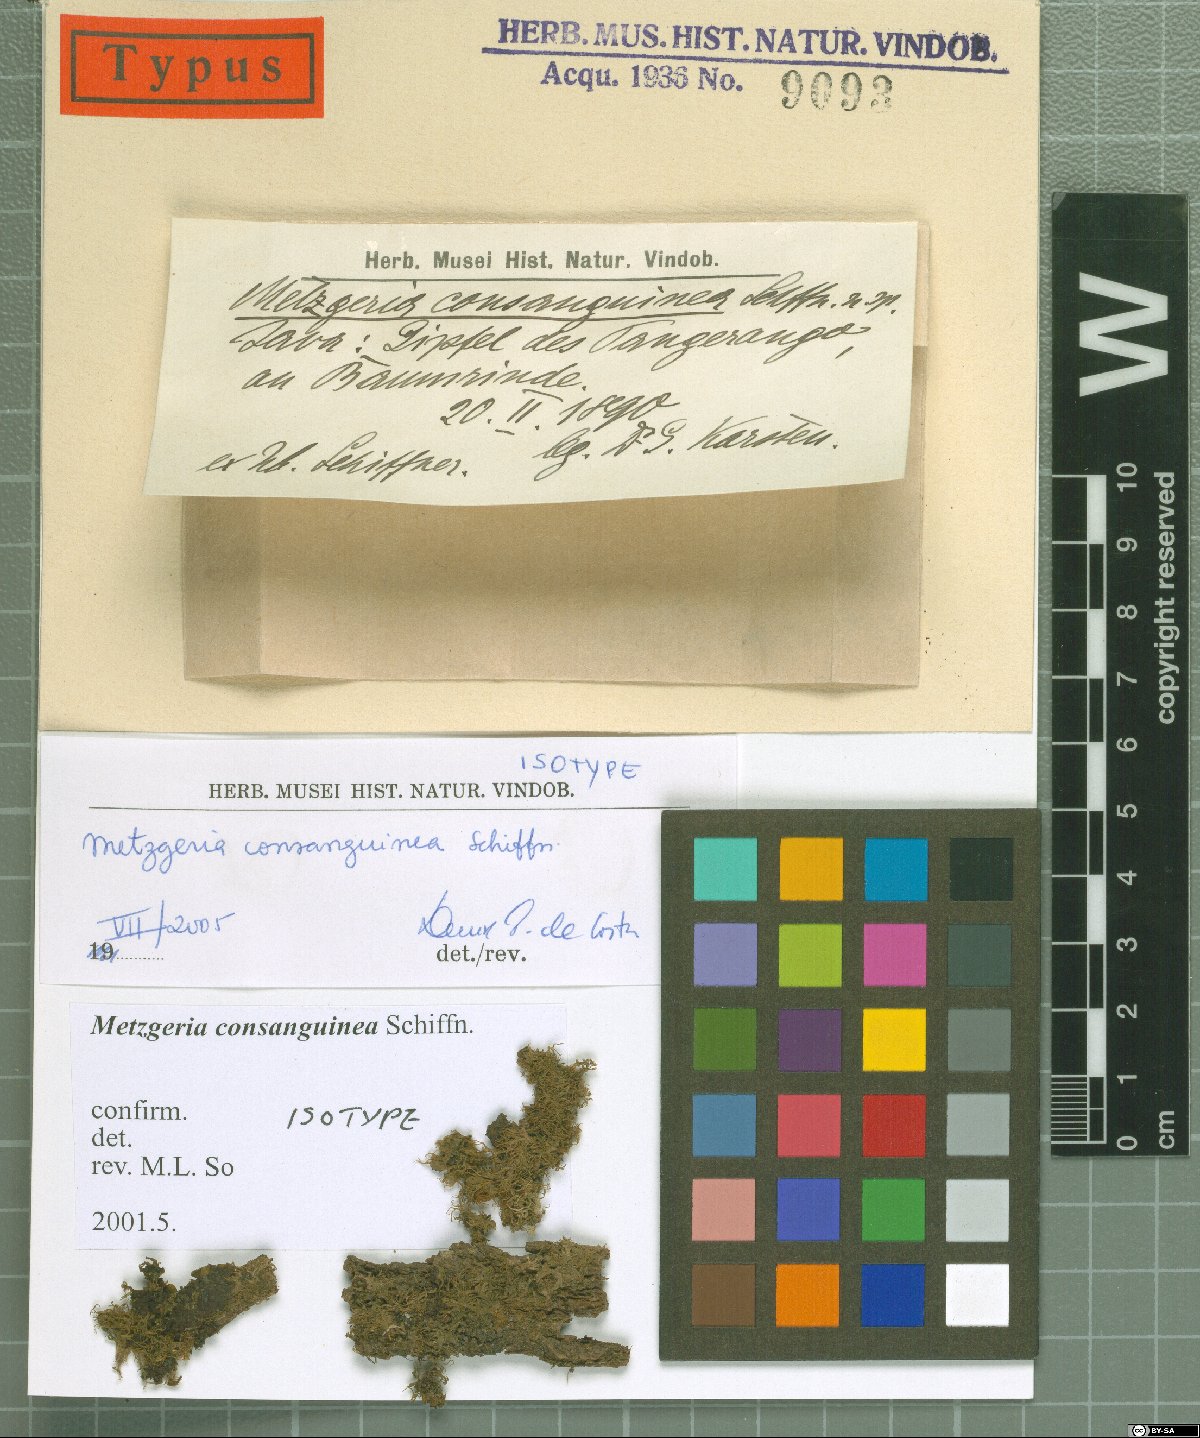 Typus
HERB. MUS. HIST. NATUR. VINDOB.
Acqu. 1936 No. 9093
Herb. Musei Hist. Natur. Vindob.
Metzgeria consanguinea Schffn. n. sp.
Java: Gipfel des Pangerango,
an Baumrinde.
20. II. 1890
ex Hb. Schiffner. lg. Dr G. Karsten.
ISOTYPE
HERB. MUSEI HIST. NATUR. VINDOB.
Metzgeria consanguinea Schiffn.
VII/2005
19
det./rev.
Metzgeria consanguinea Schiffn.
confirm.
ISOTYPE
det.
rev. M.L. So
2001.5.
W
10
9
8
7
6
5
4
3
2
1
0
cm
copyright reserved
cc BY-SA